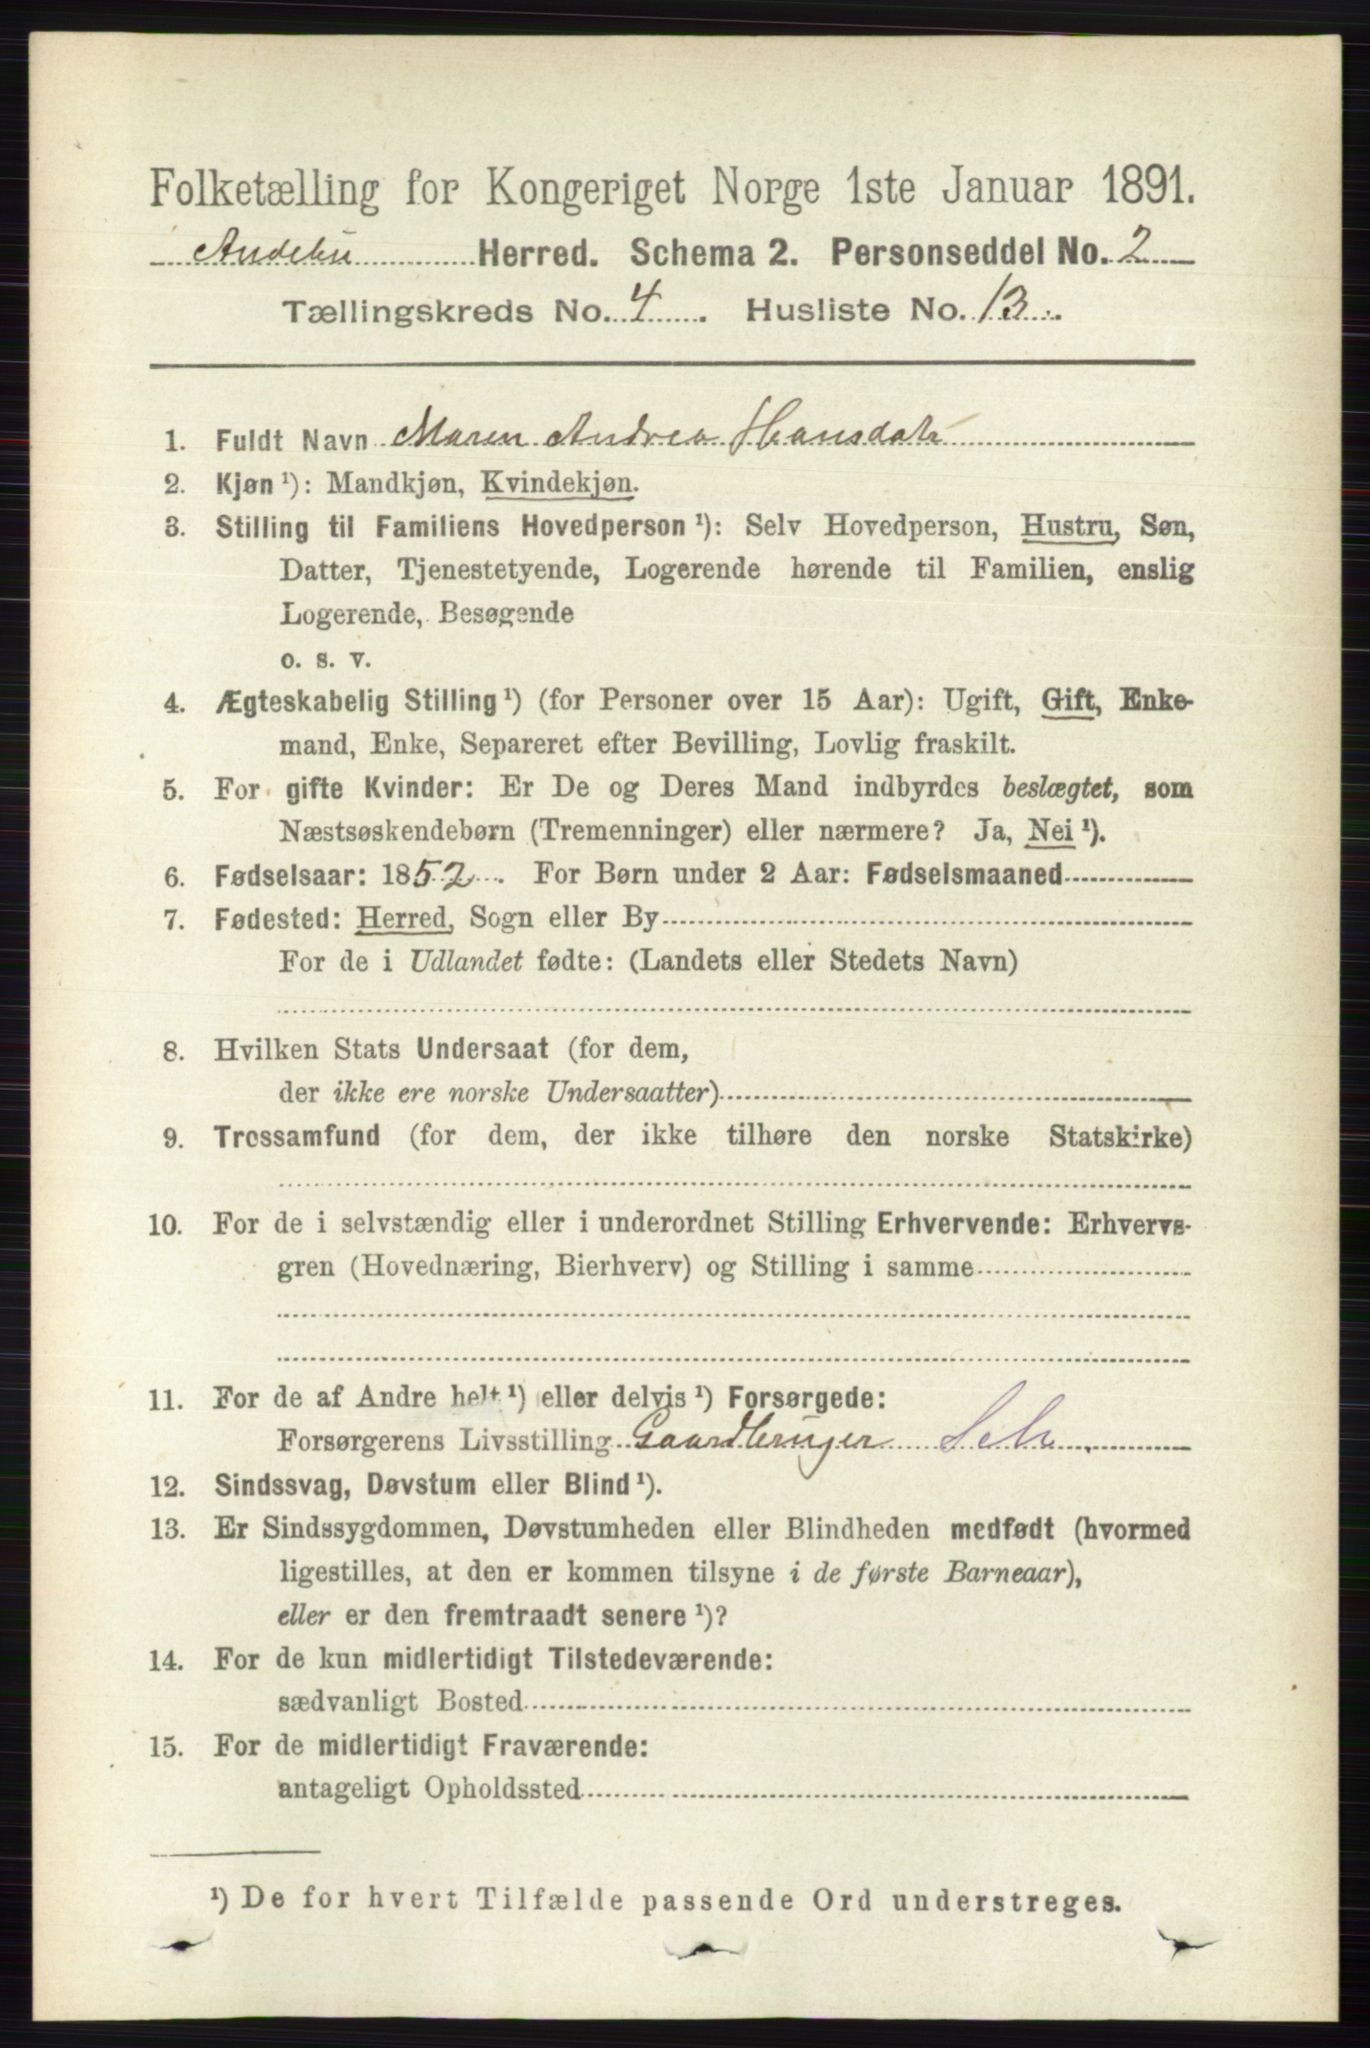 Folketælling for Kongeriget Norge 1ste Januar 1891.
Andebu Herred. Schema 2. Personseddel No. 2
Tællingskreds No. 4. Husliste No. 13.
1. Fuldt Navn Maren Andrea Hansdatr
2. Kjøn ¹): Mandkjøn, Kvindekjøn.
3. Stilling til Familiens Hovedperson ¹): Selv Hovedperson, Hustru, Søn,
Datter, Tjenestetyende, Logerende hørende til Familien, enslig
Logerende, Besøgende
o. s. v.
4. Ægteskabelig Stilling ¹) (for Personer over 15 Aar): Ugift, Gift, Enke-
mand, Enke, Separeret efter Bevilling, Lovlig fraskilt.
5. For gifte Kvinder: Er De og Deres Mand indbyrdes beslægtet, som
Næstsøskendebørn (Tremenninger) eller nærmere? Ja, Nei ¹).
6. Fødselsaar: 1852. For Børn under 2 Aar: Fødselsmaaned
7. Fødested: Herred, Sogn eller By
For de i Udlandet fødte: (Landets eller Stedets Navn)
8. Hvilken Stats Undersaat (for dem,
der ikke ere norske Undersaatter)
9. Trossamfund (for dem, der ikke tilhøre den norske Statskirke)
10. For de i selvstændig eller i underordnet Stilling Erhvervende: Erhvervs-
gren (Hovednæring, Bierhverv) og Stilling i samme
11. For de af Andre helt ¹) eller delvis ¹) Forsørgede:
Forsørgerens Livsstilling Gaardbruger Selv.
12. Sindssvag, Døvstum eller Blind ¹).
13. Er Sindssygdommen, Døvstumheden eller Blindheden medfødt (hvormed
ligestilles, at den er kommen tilsyne i de første Barneaar),
eller er den fremtraadt senere ¹)?
14. For de kun midlertidigt Tilstedeværende:
sædvanligt Bosted
15. For de midlertidigt Fraværende:
antageligt Opholdssted
¹) De for hvert Tilfælde passende Ord understreges.